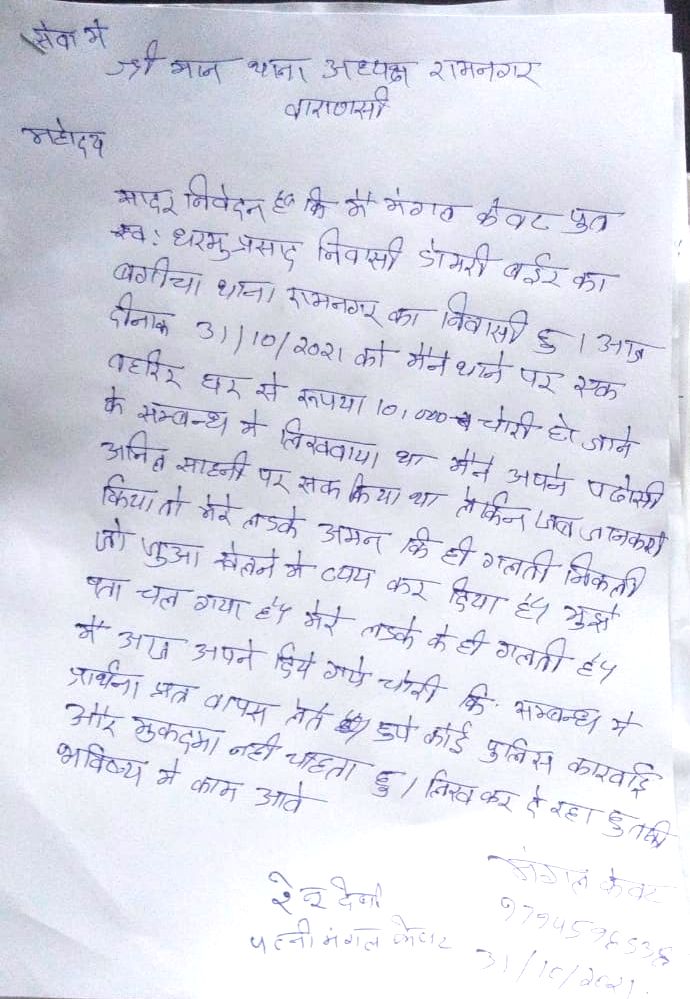 सेवा मे
श्री मान थाना अध्यक्ष रामनगर
वाराणसी
महोदय
सादर निवेदन है कि मै मंगल केवट पुत्र
स्व: धरमु प्रसाद निवासी डोमरी बईर का
बगीचा थाना रामनगर का निवासी हु। आज
दीनाक 31/10/2021 को मैने थाने पर एक
तहरिर घर से रूपया 10,000 चोरी हो जाने
के सम्बन्ध मे लिखवाया था मैने अपने पढोसी
अनिल साहनी पर सक किया था लेकिन जब जानकारी
किया तो मेरे लडके अमन कि ही गलती निकली
जो जुआ खेलने मे व्यय कर दिया है मुझे
पता चल गया है मेरे लडके के ही गलती है
मै आज अपने दिये गये चोरी कि सम्बन्ध मे
प्रार्थना पत्र वापस लेते हुये कोई पुलिस कारवाई
और मुकदमा नही चाहता हु। लिख कर दे रहा हु तकी
भविष्य मे काम आवे
मंगल केवट
देवी
पत्नी मंगल केवट
31/10/2021.